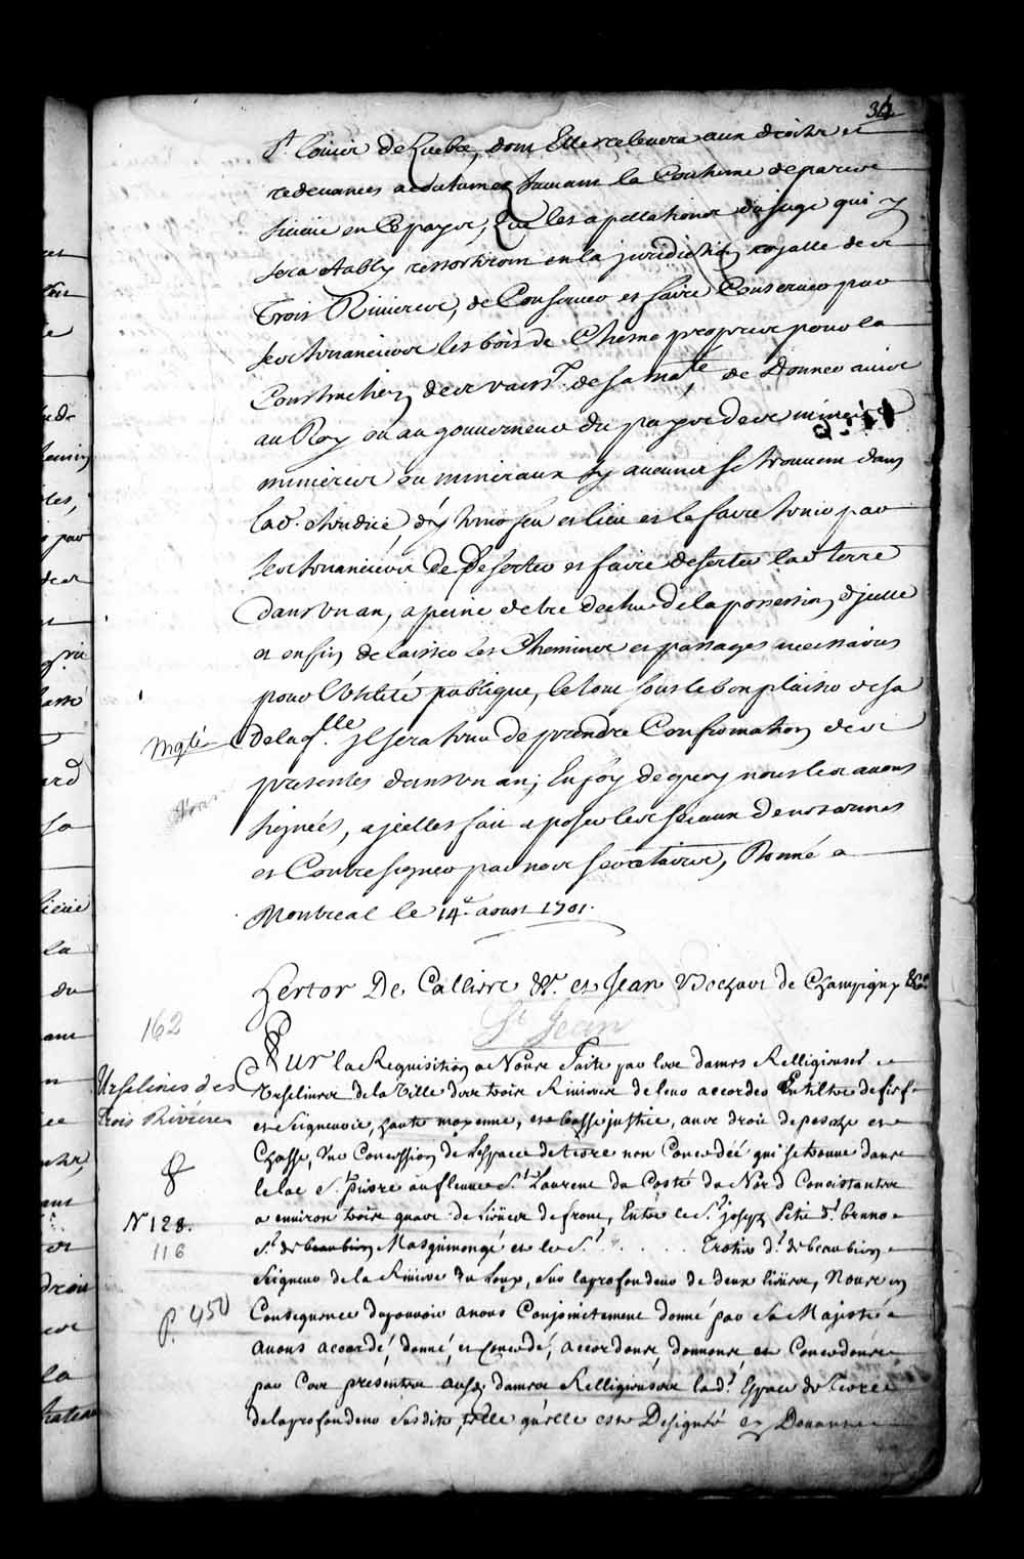 34
St. Louis de Quebec, dont Elle relevera aux droits et
redevances acoutumez suivant la Coutume de paris
suivie en Ce pays, que les apellations du juge qui y
sera étably ressortiront en la juridiction royalle des
Trois Rivieres, de Conserver et faire Conserver par
ses tenanciers les bois de Chesne propres pour la
Construction des vaiss.x de sa Ma.té, de Donner avis
au Roy ou au gouverneur du pays des mines
minieres ou mineraux sy aucuns se trouvent dans
lad. étendüe, d'y tenir feu et lieu et le faire tenir par
ses tenanciers de deserter et faire deserter lad terre
dans un an, a peine detre dechu de la possession d'jcelle
et enfin de laisser les Chemins et passages necessaires
pour l'Utilité publique, le tout sous le bon plaisir de sa
Ma.té de laq.lle jl sera tenu de prendre Confirmation des
presentes dans un an; En foy de quoy nous les avons
signées, a jcelles fait aposer les sceaux de nos armes
et Contresigner par nos secretaires, Donné a
Montreal le 14.e aoust 1701.
Hector De Calliere &c. et Jean Bochart de Champigny &c.
162
St Jean
Sur la Requisition a Nous Faite par les dames Relligieuses
Urselines des
Trois Riviéres
Urselines de la Ville des trois Rivieres de leur accorder En tiltre de fief
et Seigneurie, haute moyenne, et basse justice, avec droit de pesche et
Chasse, Une Concession de L'espace de terre non Concedée qui se trouve dans
le lac S.t pierre au fleuve S.t Laurent du Costé du Nord Consistante
N 128.
a environ trois quarts de lieues de front, Entre le S.r joseph Petit d.t bruno
116
S.r de Masquinongé et le S.r Trotier d.t de beaubien
Seigneur de la Riviere du Loup, sur la profondeur de deux lieues, Nous en
p. 450
Consequence du pouvoir a nous Conjointement donné par Sa Majesté
avons accordé, donné, et concedé, accordons, donnons et Concedons
par Ces presentes ausd. dames Relligieuses lad.e Espace de terre
de la profondeur Susdite, telle qu'elle est Designée cy Devant